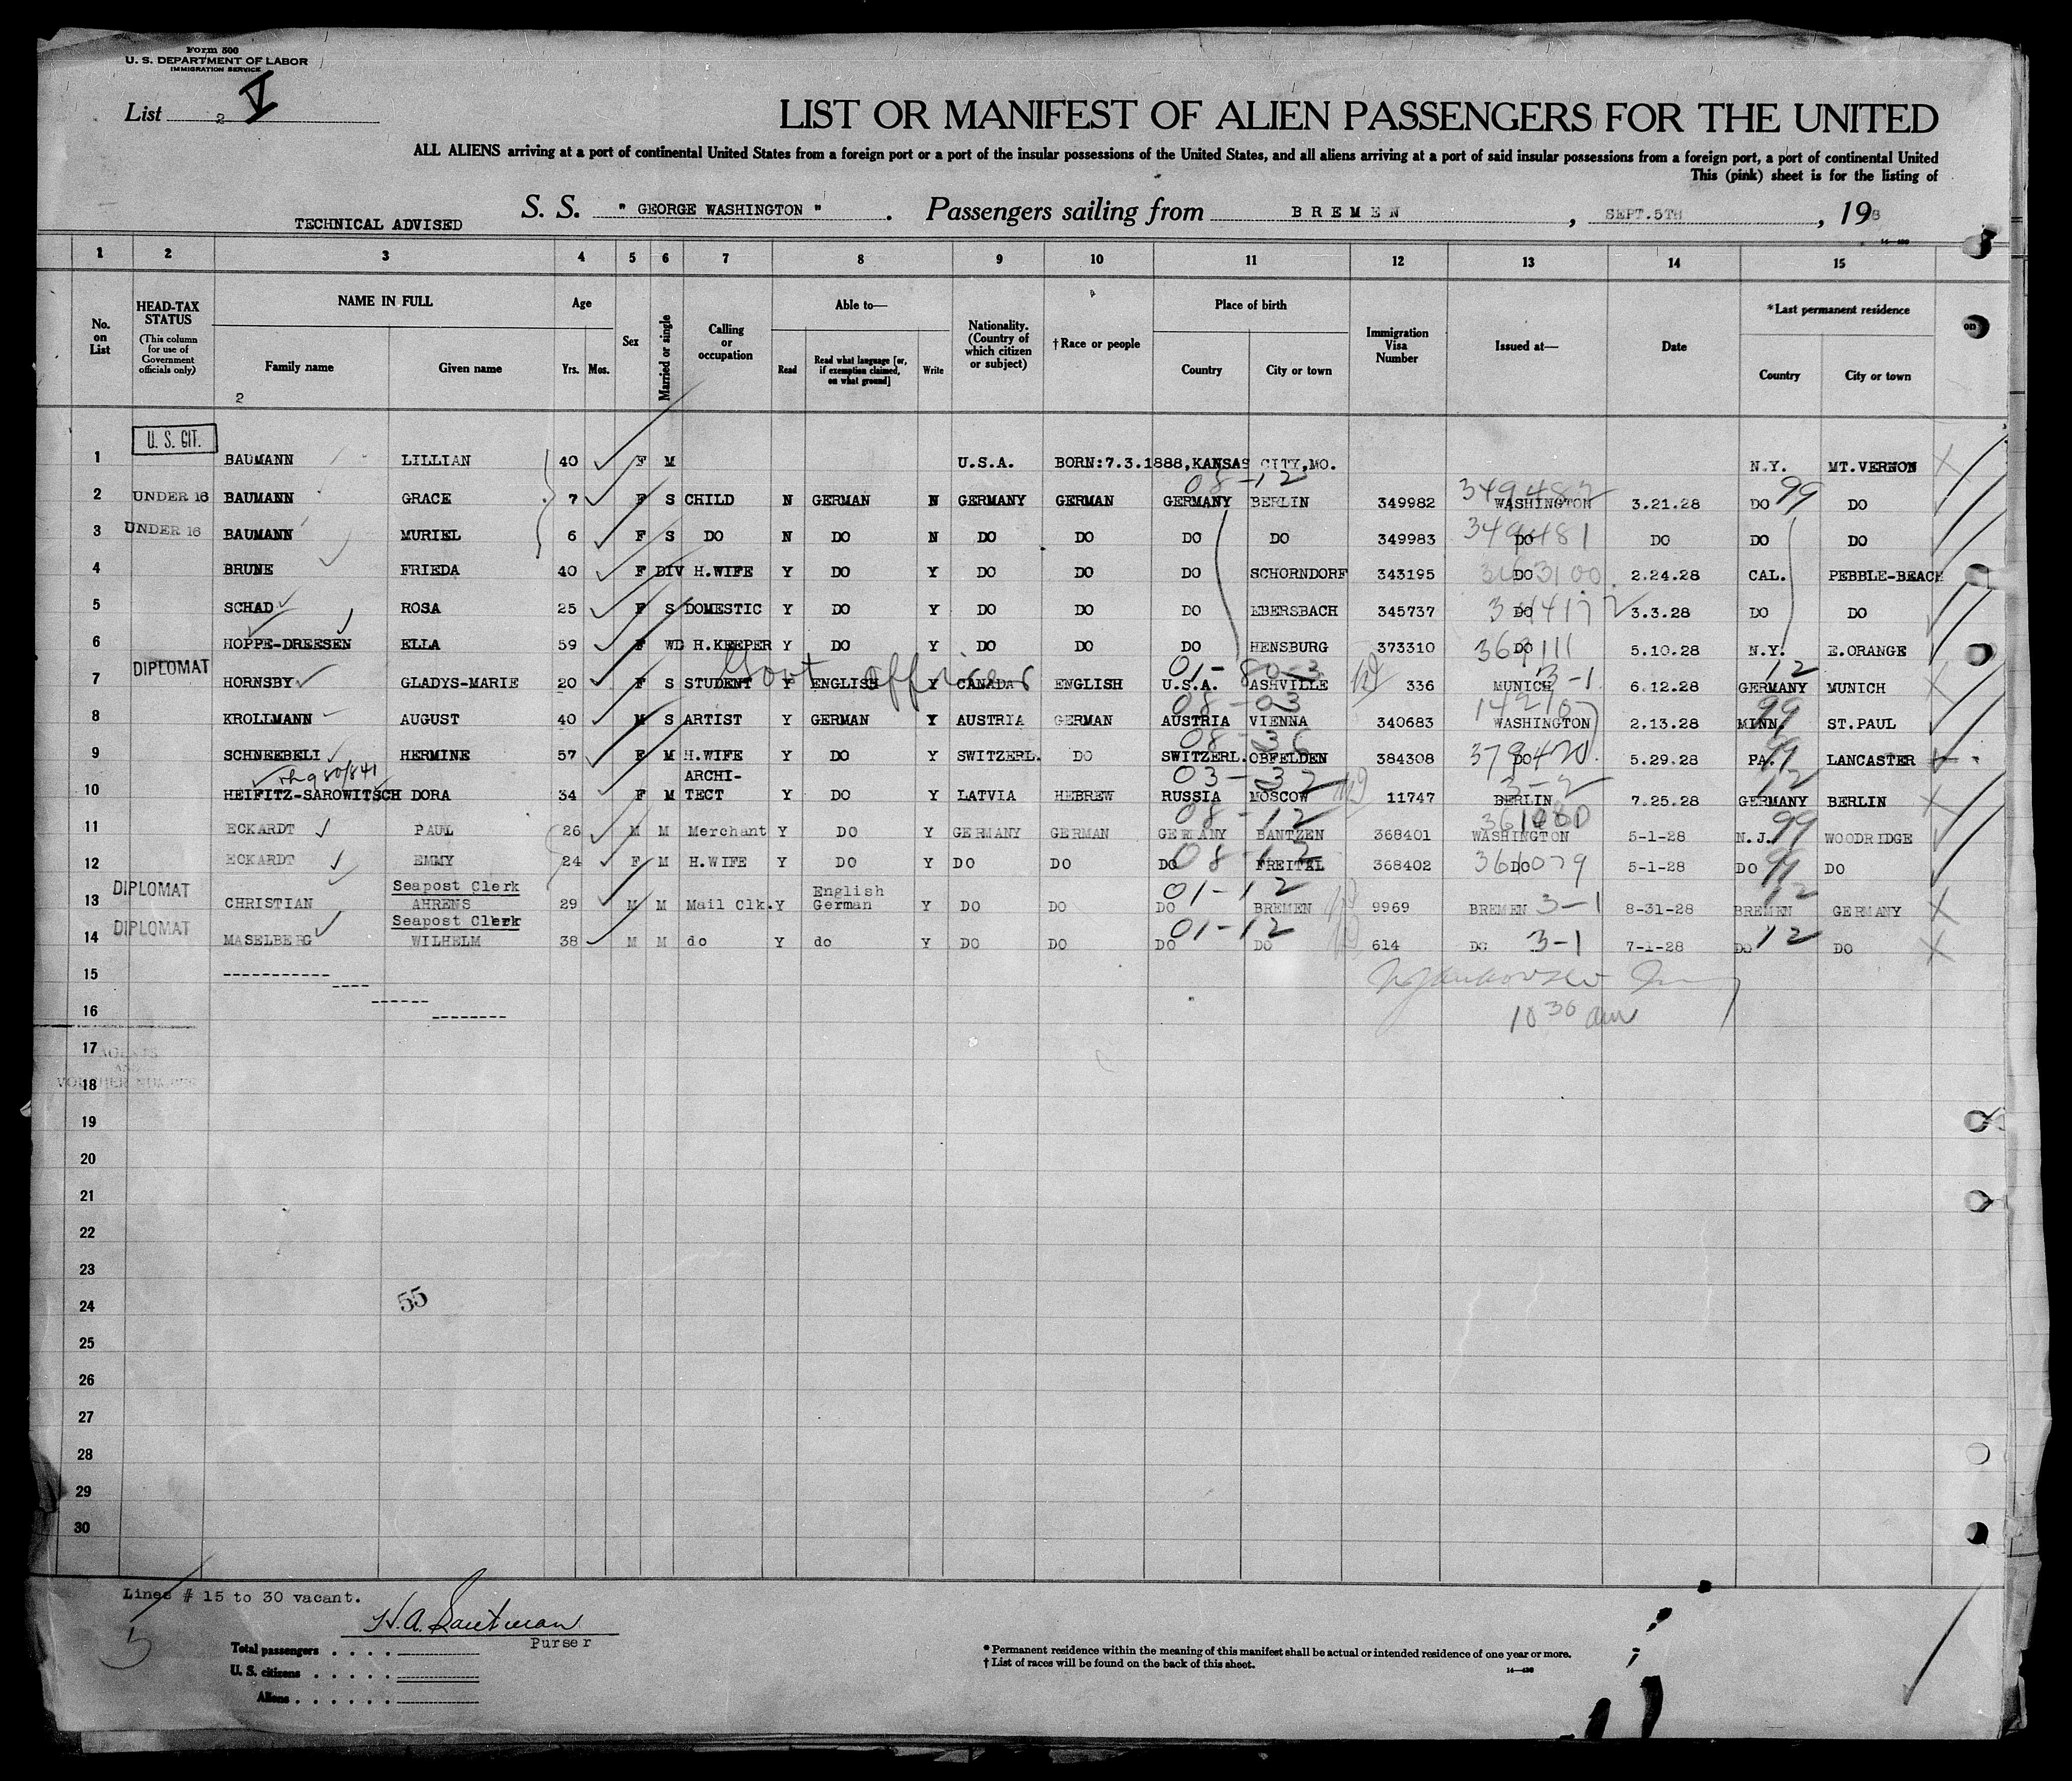 Form 500
U. S. DEPARTMENT OF LABOR
IMMIGRATION SERVICE
List 2 V
LIST OR MANIFEST OF ALIEN PASSENGERS FOR THE UNITED
ALL ALIENS arriving at a port of continental United States from a foreign port or a port of the insular possessions of the United States, and all aliens arriving at a port of said insular possessions from a foreign port, a port of continental United
This (pink) sheet is for the listing of
TECHNICAL ADVISED S. S. " GEORGE WASHINGTON " . Passengers sailing from BREMEN , SEPT.5TH , 198
14-430
1 2 3 4 5 6 7 8 9 10 11 12 13 14 15
No. on List
HEAD-TAX STATUS (This column for use of Government officials only)
NAME IN FULL Family name Given name
Age Yrs. Mos.
Sex
Married or single
Calling or occupation
Able to— Read Read what language [or, if exemption claimed, on what ground] Write
Nationality. (Country of which citizen or subject)
† Race or people
Place of birth Country City or town
Immigration Visa Number
Issued at—
Date
*Last permanent residence Country City or town
2
U. S. CIT.
1 BAUMANN LILLIAN 40 F M U.S.A. BORN:7.3.1888,KANSAS CITY,MO. N.Y. MT.VERNON
08-12
2 UNDER 16 BAUMANN GRACE 7 F S CHILD N GERMAN N GERMANY GERMAN GERMANY BERLIN 349982 349482 WASHINGTON 3.21.28 DO 99 DO
3 UNDER 16 BAUMANN MURIEL 6 F S DO N DO N DO DO DO DO 349983 349481 DO DO DO DO
4 BRUNE FRIEDA 40 F DIV H.WIFE Y DO Y DO DO DO SCHORNDORF 343195 DO 2.24.28 CAL. PEBBLE-BEACH
5 SCHAD ROSA 25 F S DOMESTIC Y DO Y DO DO DO EBERSBACH 345737 DO 3.3.28 DO DO
6 HOPPE-DREESEN ELLA 59 F WD H.KEEPER Y DO Y DO DO DO HENSBURG 373310 369111 DO 5.10.28 N.Y. E.ORANGE
DIPLOMAT Govt officer 01-80-3 12
7 HORNSBY GLADYS-MARIE 20 F S STUDENT Y ENGLISH Y CANADA ENGLISH U.S.A. ASHVILLE 336 MUNICH 3-1 6.12.28 GERMANY MUNICH
08-03
8 KROLLMANN AUGUST 40 M S ARTIST Y GERMAN Y AUSTRIA GERMAN AUSTRIA VIENNA 340683 WASHINGTON 2.13.28 MINN. 99 ST.PAUL
08-36
9 SCHNEEBELI HERMINE 57 F M H.WIFE Y DO Y SWITZERL. DO SWITZERL. OBFELDEN 384308 379420 DO 5.29.28 PA. 99 LANCASTER
ARCHI- 03-32 3-2 12
10 HEIFITZ-SAROWITSCH DORA 34 F M TECT Y DO Y LATVIA HEBREW RUSSIA MOSCOW 11747 BERLIN 7.25.28 GERMANY BERLIN
08-12
11 ECKARDT PAUL 26 M M Merchant Y DO Y GERMANY GERMAN GERMANY BANTZEN 368401 361080 WASHINGTON 5-1-28 N.J. 99 WOODRIDGE
12 ECKARDT EMMY 24 F M H.WIFE Y DO Y DO DO DO 08-12 FREITAL 368402 361079 DO 5-1-28 DO 99 DO
DIPLOMAT Seapost Clerk English 01-12 12
13 CHRISTIAN AHRENS 29 M M Mail Clk. Y German Y DO DO DO BREMEN 9969 BREMEN 3-1 8-31-28 BREMEN GERMANY
DIPLOMAT Seapost Clerk 01-12
14 MASELBERG WILHELM 38 M M do Y do Y DO DO DO DO 614 DO 3-1 7-1-28 DO 12 DO
15
16 10 30 am
17 AGENTS AND
18 VOUCHER NUMBER
19
20
21
22
23
24 55
25
26
27
28
29
30
Lines # 15 to 30 vacant.
H.A. Sautman
Purser
5
Total passengers . . . .
U. S. citizens . . . . .
Aliens . . . . . .
* Permanent residence within the meaning of this manifest shall be actual or intended residence of one year or more.
† List of races will be found on the back of this sheet.
14-430